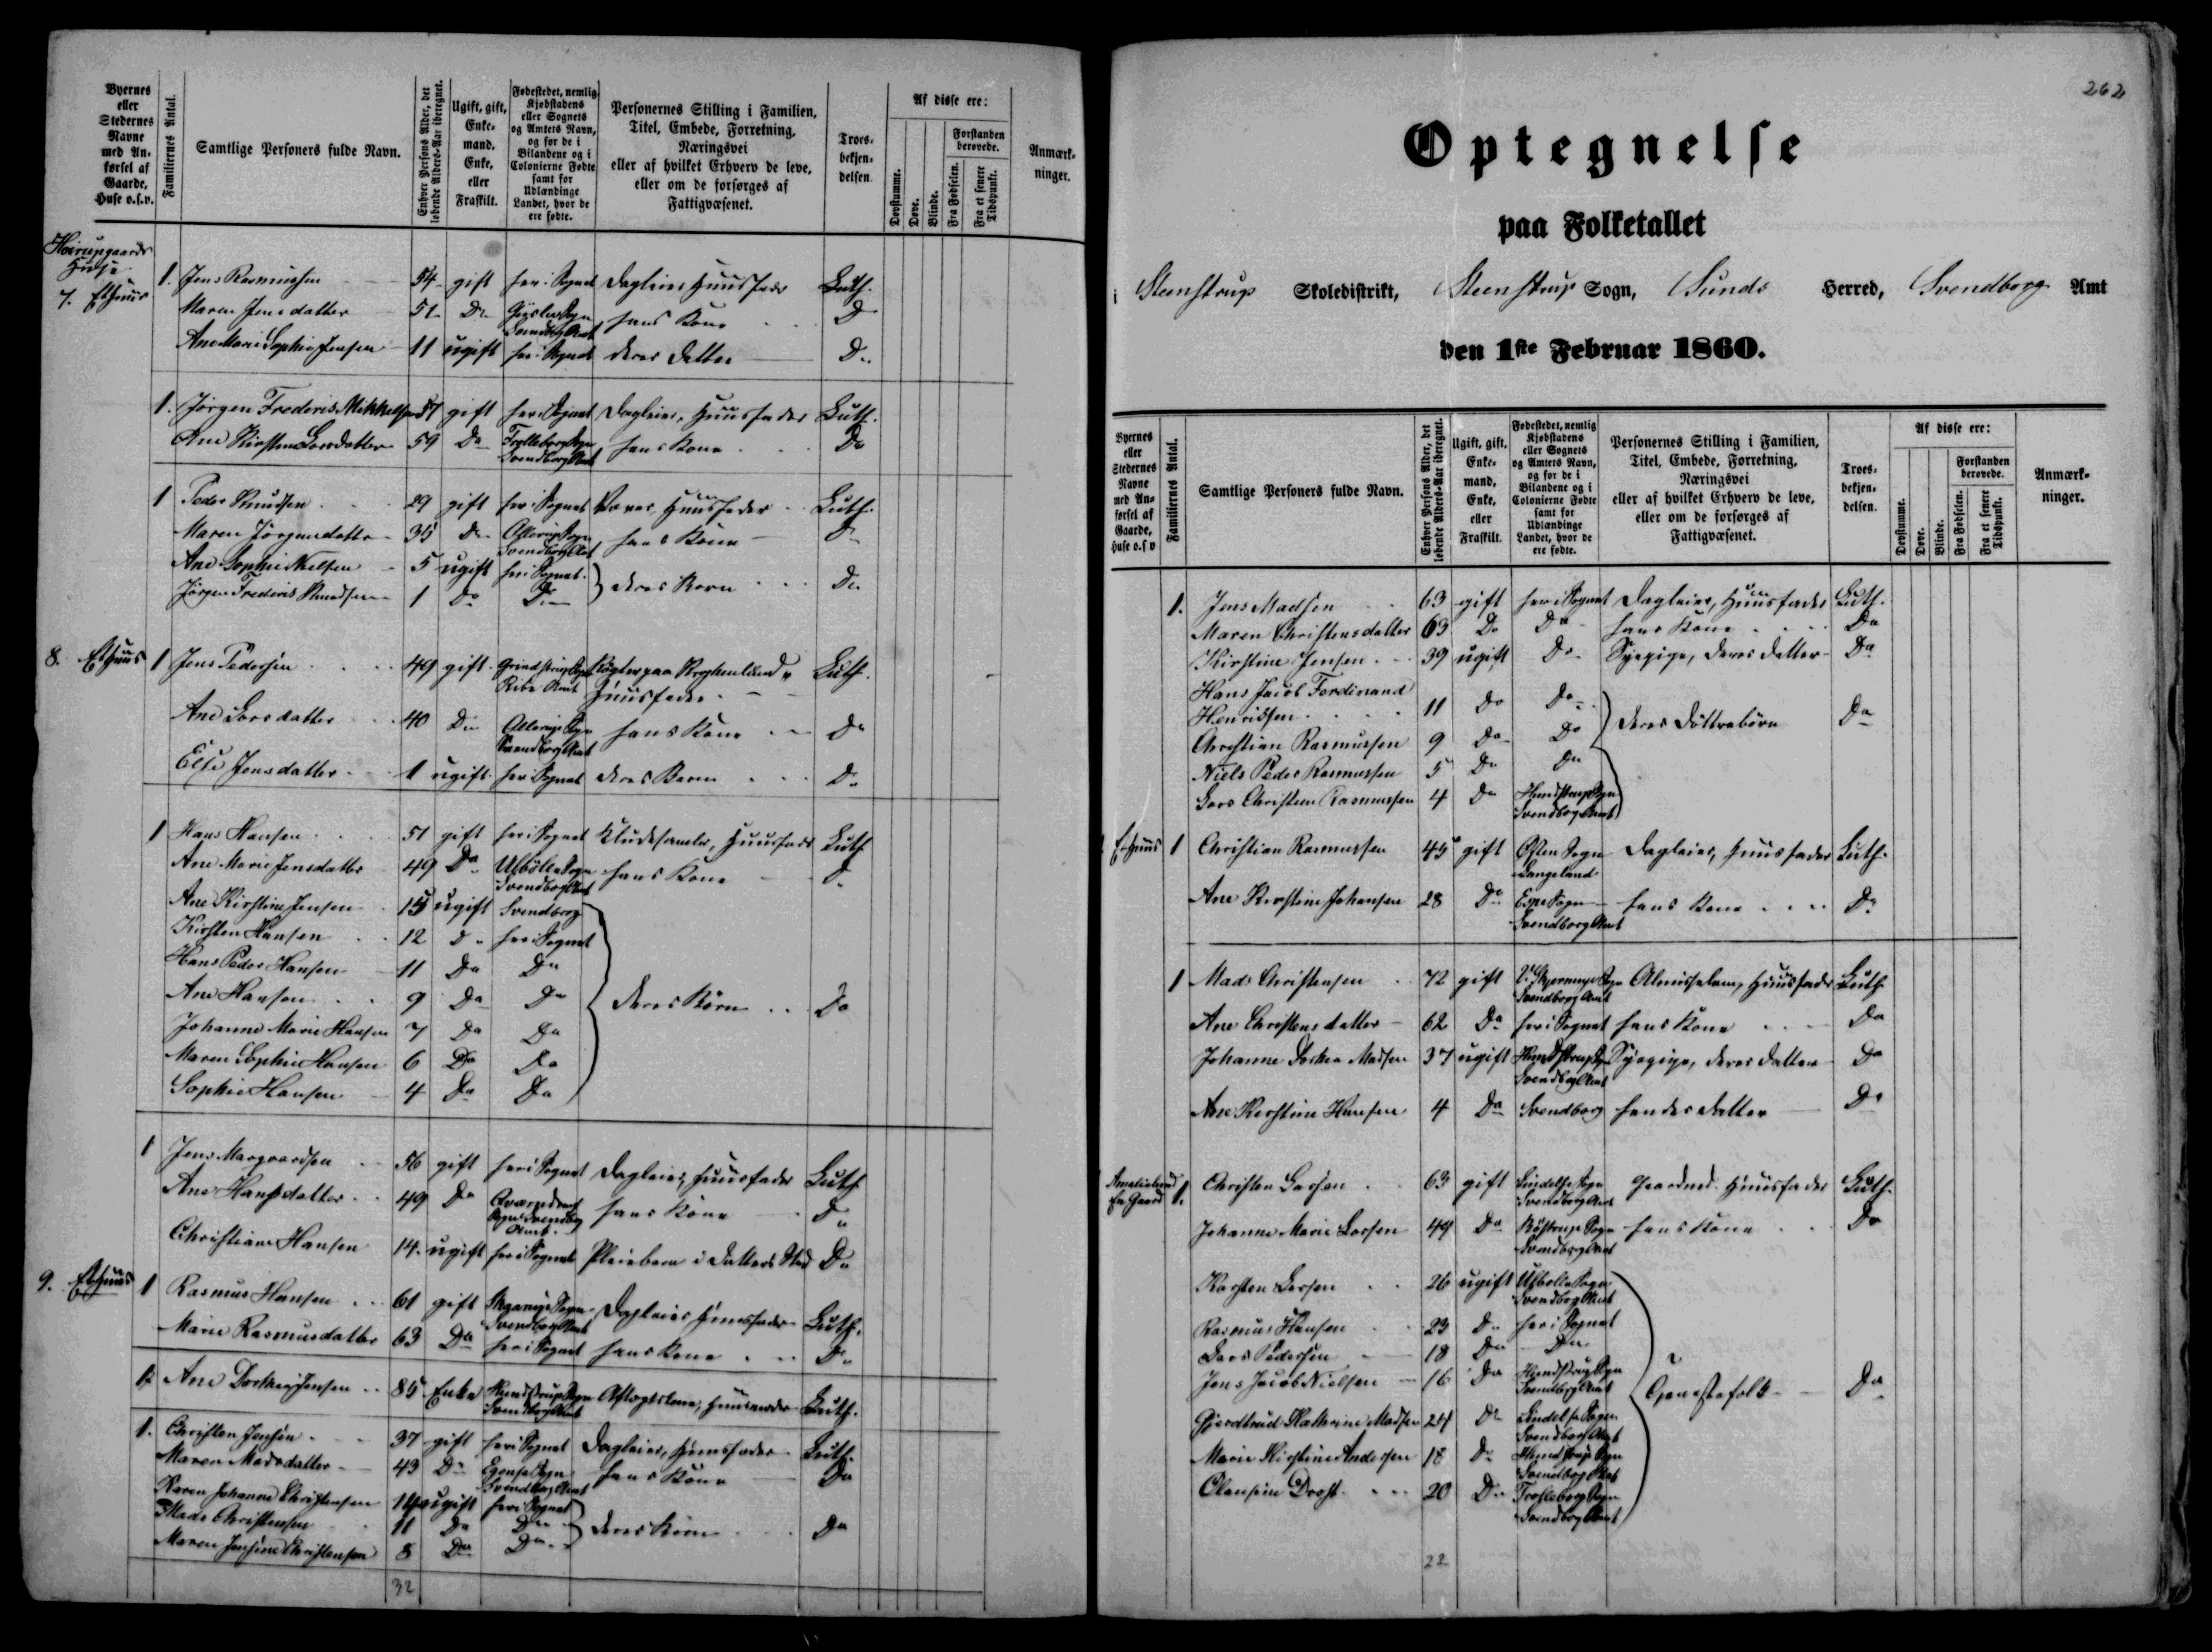 Byernes eller Stedernes Navne med Anførsel af Gaarde, Huse o.s.v.
Familiernes Antal.
Samtlige Personers fulde Navn.
Enhver Persons Alder, det løbende Alders-Aar iberegnet.
Ugift, gift, Enkemand, Enke, eller Fraskilt.
Fødestedet, nemlig Kjøbstadens eller Sognets og Amtets Navn, og for de i Bilandene og i Colonierne Fødte samt for Udlændinge Landet, hvor de ere fødte.
Personernes Stilling i Familien, Titel, Embede, Forretning, Næringsvei eller af hvilket Erhverv de leve, eller om de forsørges af Fattigvæsenet.
Troesbekjendelsen.
Af disse ere:
Døvstumme.
Døve.
Blinde.
Forstanden berøvede.
Fra Fødselen.
Fra et senere Tidspunkt.
Anmærkninger.
7. Et Huus 1. Jens Rasmussen 54 gift her i Sognet Dagleier, Huusfader Luth.
Maren Jensdatter 51 Do Svendborg Amt hans Kone Do
Ane Marie Sophie Jensen 11 ugift her i Sognet deres Datter Do
1. Jørgen Frederik Mikkelsen 57 gift her i Sognet Dagleier, Huusfader Luth.
Ane Kirsten Larsdatter 59 Do Trolleborg Sogn Svendborg Amt hans Kone Do
1 Peder Knudsen 29 gift her i Sognet Væver, Huusfader Luth.
Maren Jørgensdatter 35 Do Ollerup Sogn Svendborg Amt hans Kone Do
Ane Sophie Nielsen 5 ugift her i Sognet
Jørgen Frederik Knudsen 1 Do Do } deres Børn Do
8. Et Huus 1 Jens Pedersen 49 gift Grindstrup Sogn Ribe Amt Huusfader Luth.
Ane Larsdatter 40 Do Ollerup Sogn Svendborg Amt hans Kone Do
Else Jensdatter 1 ugift her i Sognet deres Barn Do
1 Hans Hansen 51 gift her i Sognet Kludesamler, Huusfader Luth
Ane Marie Jensdatter 49 Do Ulbølle Sogn Svendborg Amt hans Kone Do
Ane Kirstine Jensen 15 ugift Svendborg
Kirsten Hansen 12 Do her i Sognet
Hans Peder Hansen 11 Do Do
Ane Hansen 9 Do Do deres Børn Do
Johanne Marie Hansen 7 Do Do
Maren Sophie Hansen 6 Do Do
Sophie Hansen 4 Do Do
1 Jens Margvardsen 56 gift her i Sognet Dagleier, Huusfader Luth
Ane Hansdatter 49 Do Sogn Svendborg Amt hans Kone Do
Christiane Hansen 14 ugift her i Sognet Pleiebarn i Datters Sted Do
9. Et Huus 1 Rasmus Hansen 61 gift Sogn Svendborg Amt Dagleier Huusfader Luth.
Marie Rasmusdatter 63 Do her i Sognet hans Kone Do
1. Ane Dorthea Jensen 85 Enke Hundstrup Sogn Svendborg Amt Aftægtskone, Huusmoder Luth.
1. Christen Jensen 37 gift her i Sognet Dagleier, Huusfader Luth
Maren Madsdatter 43 Do Egense Sogn Svendborg Amt hans Kone Do
Karen Johanne Christensen 14 ugift her i Sognet
Mads Christensen 11 Do Do } deres Børn Do
Maren Jensine Christensen 8 Do Do
32
262
Optegnelse
paa Folketallet
i Steenstrup Skoledistrikt, Steenstrup Sogn, Sunds Herred, Svendborg Amt
den 1ste Februar 1860.
Byernes eller Stedernes Navne med Anførsel af Gaarde, Huse o.s.v
Familiernes Antal.
Samtlige Personers fulde Navn.
Enhver Persons Alder, det løbende Alders-Aar iberegnet.
Ugift, gift, Enkemand, Enke, eller Fraskilt.
Fødestedet, nemlig Kjøbstadens eller Sognets og Amtets Navn, og for de i Bilandene og i Colonierne Fødte samt for Udlændinge Landet, hvor de ere fødte.
Personernes Stilling i Familien, Titel, Embede, Forretning, Næringsvei eller af hvilket Erhverv de leve, eller om de forsørges af Fattigvæsenet.
Troesbekjendelsen.
Af disse ere:
Døvstumme.
Døve.
Blinde.
Forstanden berøvede.
Fra Fødselen.
Fra et senere Tidspunkt.
Anmærkninger.
1. Jens Madsen 63 gift her i Sognet Dagleier, Huusfader Luth.
Maren Christensdatter 63 Do Do hans Kone Do
Kirstine Jensen 39 ugift Do Syepige, deres Datter Do
Hans Jacob Ferdinand
Henriksen 11 Do Do
Christian Rasmussen 9 Do Do deres Dottrebörn Do
Niels Peder Rasmussen 5 Do Do
Lars Christian Rasmussen 4 Do Hundstrup Sogn Svendborg Amt
Et Huus 1 Christian Rasmussen 45 gift Sogn Langeland Dagleier, Huusfader Luth.
Ane Kirstine Johansen 28 Do Espe Sogn Svendborg Amt hans Kone Do
1 Mads Christensen 72 gift V. Skjerninge Sogn Svendborg Amt Almisselem, Huusfader Luth
Ane Christensdatter 62 Do her i Sognet hans Kone Do
Johanne Dorthea Madsen 37 ugift Hundstrup Sogn Svendborg Amt Syepige, deres Datter Do
Ane Kirstine Hansen 4 Do Svendborg hendes Datter Do
Amalielund En Gaard 1. Christen Larsen 63 gift Lindelse Sogn Svendborg Amt Gaardmd. Huusfader Luth.
Johanne Marie Larsen 44 Do Sogn Svendborg Amt hans Kone Do
Karsten Larsen 26 ugift Ulbølle Sogn Svendborg Amt
Rasmus Hansen 23 Do her i Sognet
Lars Pedersen 18 Do Do
Jens Jacob Nielsen 16 Do Hundstrup Sogn Svendborg Amt Tjenestefolk Do
Gjerdtrud Kathrine Madsen 24 Do Lindelse Sogn Svendborg Amt
Marie Kirstine Andersen 18 Do Hundstrup Sogn Svendborg Amt
Olensine Drost 20 Do Trolleborg Sogn Svendborg Amt
22